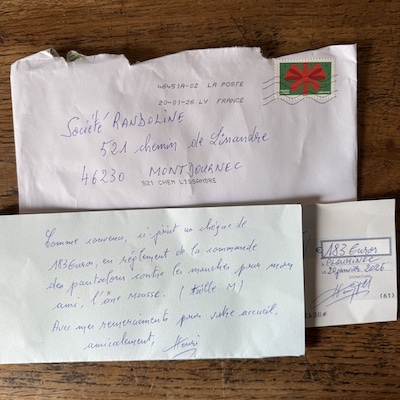 48451A-02 LA POSTE
20-01-26 LV FRANCE
Société RANDOLINE
521 chemin de Lissandre
46230 MONTDOUMERC
521 CHEM LISSANDRE
Comme convenu, ci-joint un chèque de
183 Euros, en règlement de la commande
des pantalons contre les mouches pour mon
ami, l'âne Mousse. (taille M)
Avec mes remerciements pour votre accueil.
amicalement,
183 Euros
20 janvier 2026